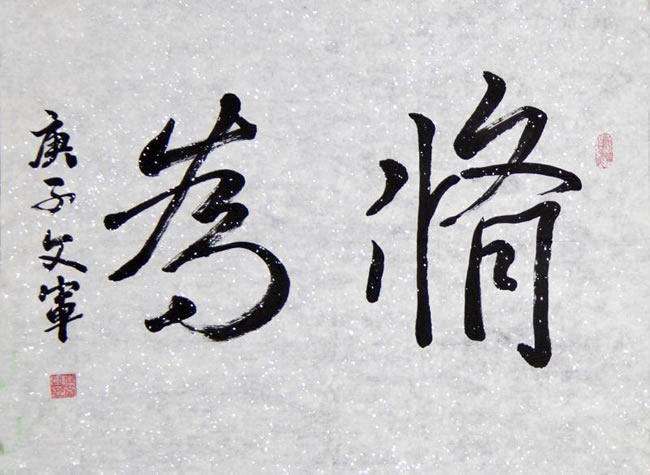 脩為
庚子文軍